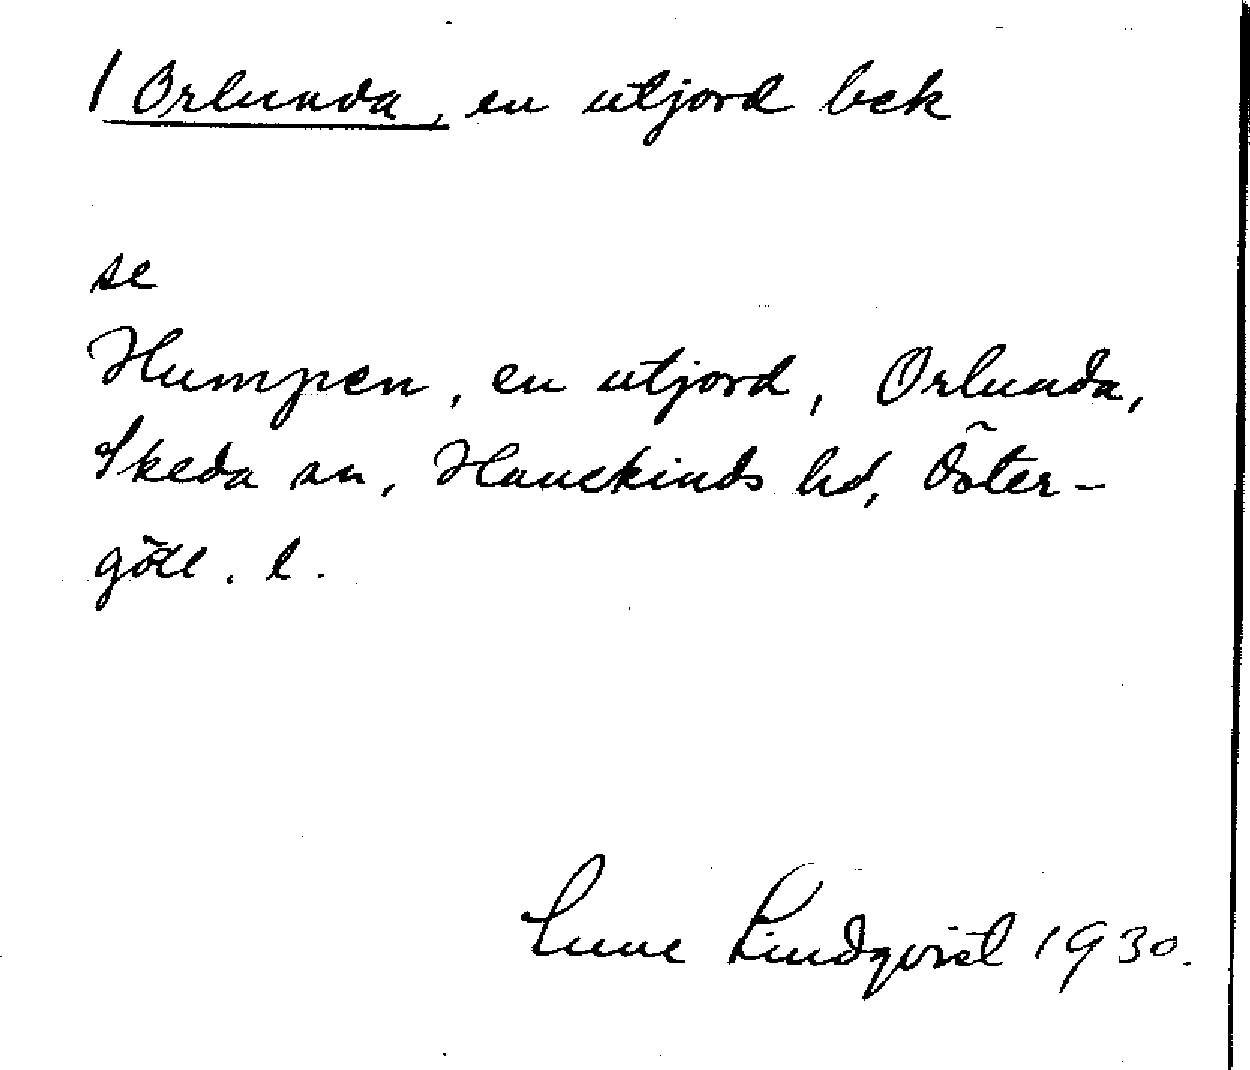 / Orlunda, en utjord bek
se
Humpen, en utjord, Orlunda,
Skeda sn, Hanekinds hd, Öster-
götl. l.
Sune Lindqvist 1930.